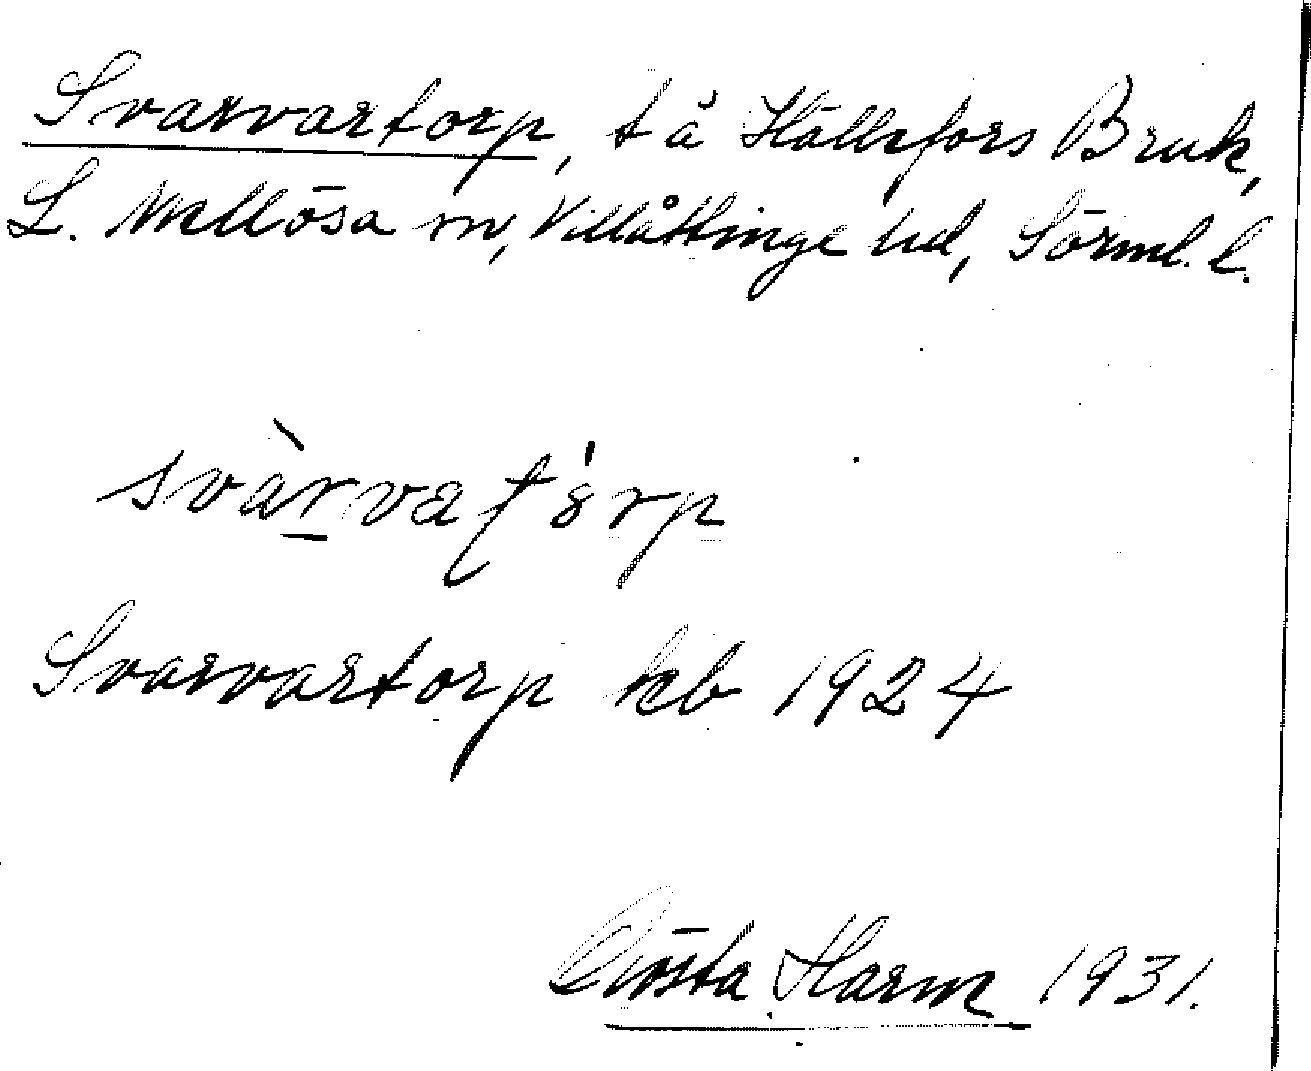 Svarvartorp, t å Hällefors Bruk,
L. Mellösa sn, Villåttinge hd, Sörml. l.
svàrvatórp
Svarvartorp kb 1924
Gösta Harm 1931.